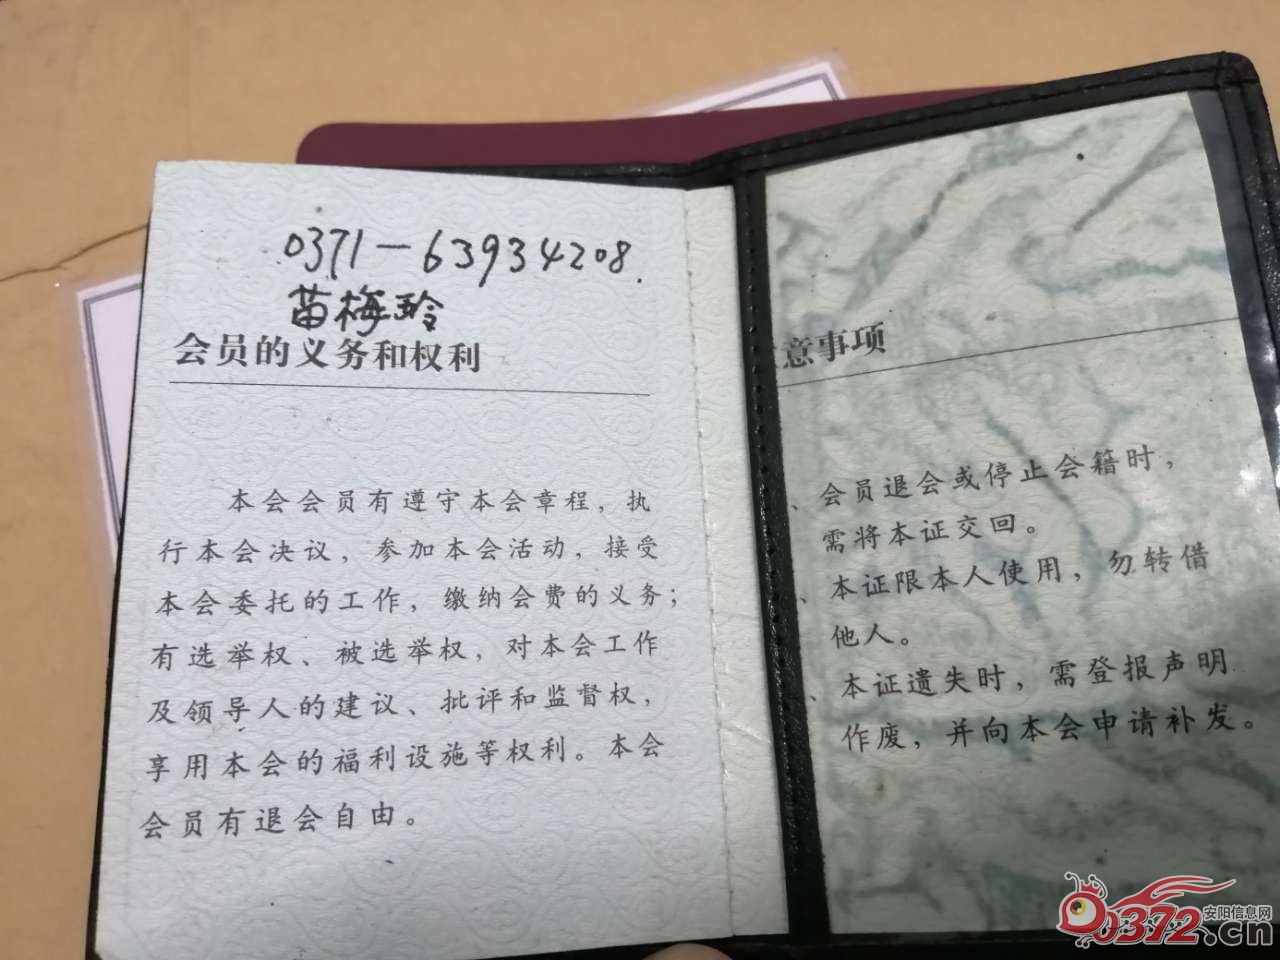 0371-63934208.
苗梅玲
会员的义务和权利
本会会员有遵守本会章程，执
行本会决议，参加本会活动，接受
本会委托的工作，缴纳会费的义务；
有选举权、被选举权，对本会工作
及领导人的建议、批评和监督权，
享用本会的福利设施等权利。本会
会员有退会自由。
意事项
、会员退会或停止会籍时，
需将本证交回。
、本证限本人使用，勿转借
他人。
、本证遗失时，需登报声明
作废，并向本会申请补发。
0372.cn
安阳信息网